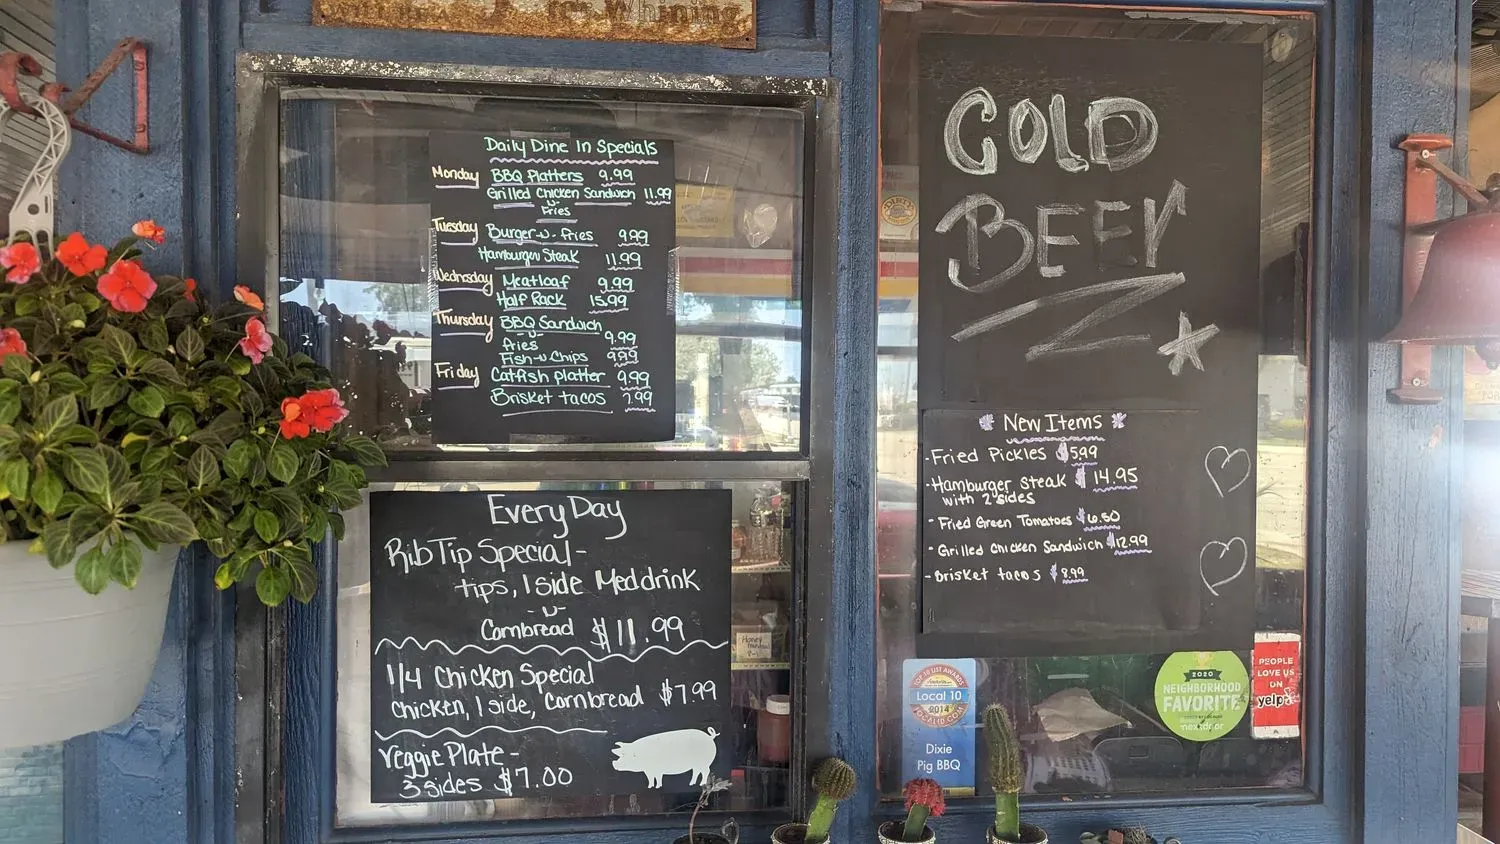 Whining
Daily Dine In Specials
Monday BBQ Platters 9.99
Grilled Chicken Sandwich 11.99
-w-
Fries
Tuesday Burger-w-fries 9.99
Hamburger Steak 11.99
Wednesday Meatloaf 9.99
Half Rack 15.99
Thursday BBQ Sandwich
-w-
fries 9.99
Fish-w-Chips 9.99
Friday Catfish platter 9.99
Brisket tacos 7.99
Every Day
Rib Tip Special-
tips, 1 side Med drink
-w-
Cornbread $11.99
1/4 Chicken Special
Chicken, 1 side, Cornbread $7.99
Veggie Plate-
3 sides $7.00
COLD
BEER
New Items
-Fried Pickles $5.99
-Hamburger steak $14.95
with 2 sides
-Fried Green Tomatoes $6.50
-Grilled Chicken Sandwich $12.99
-Brisket tacos $8.99
TOP 10 LIST AWARDS
Local 10
2014
LOCAL10.COM
Dixie
Pig BBQ
2020
NEIGHBORHOOD
FAVORITE
nextdoor
PEOPLE
LOVE US
ON
yelp
Honey